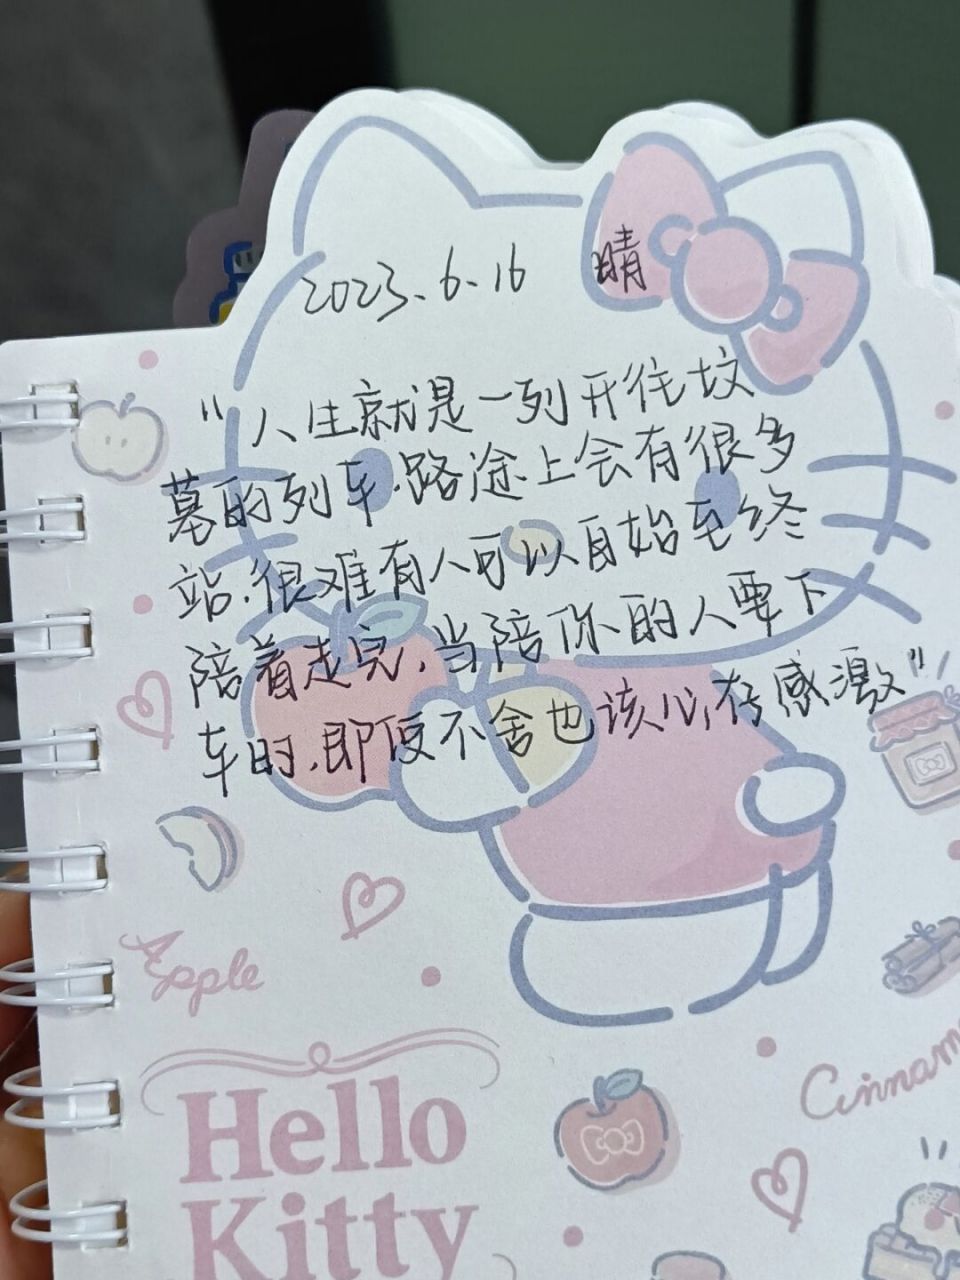 2023.6.16 晴
"人生就是一列开往坟
墓的列车.路途上会有很多
站.很难有人可以自始至终
陪着走完.当陪你的人要下
车时.即便不舍也该心存感激"
Apple
Hello
Kitty
Cinnam